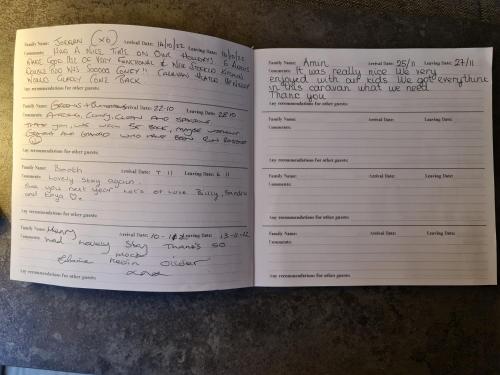 Family Name: JORDAN (x6) Arrival Date: 14/10/22 Leaving Date:
Comments: HAD A NICE TIME ON OUR HOLIDAY! 6 ADULTS
MADE GOOD USE OF VERY FUNCTIONAL & WELL STOCKED KITCHEN
DOUBLE BED WAS SOOOOO COMFY!! CARAVAN HEATED
WOULD CLEARLY COME BACK
Any recommendations for other guests:
Family Name: Arrival Date: 22-10 Leaving Date: 28-10
Comments: AMAZING, COMFY, CLEAN AND SPACIOUS
THANK YOU, WE WILL BE BACK, MAYBE WITHOUT
GRANNY AND GRANDAD WHO HAVE BEEN
Any recommendations for other guests:
Family Name: Booth Arrival Date: Leaving Date:
Comments: Lovely stay again.
See you next year. Lots of love Billy, Sandra
and
Any recommendations for other guests:
Family Name: Henry Arrival Date: 10- Leaving Date: 13-11-22
Comments: had lovely stay Thanks so
much
Elaine Kevin Oliver
Any recommendations for other guests:
Family Name: Amin Arrival Date: 25/11 Leaving Date: 27/11
Comments: It was really nice we very
enjoyed with our kids. We got everything
in this caravan what we need.
Thank you
Any recommendations for other guests:
Family Name: Arrival Date: Leaving Date:
Comments:
Any recommendations for other guests:
Family Name: Arrival Date: Leaving Date:
Comments:
Any recommendations for other guests:
Family Name: Arrival Date: Leaving Date:
Comments:
Any recommendations for other guests: